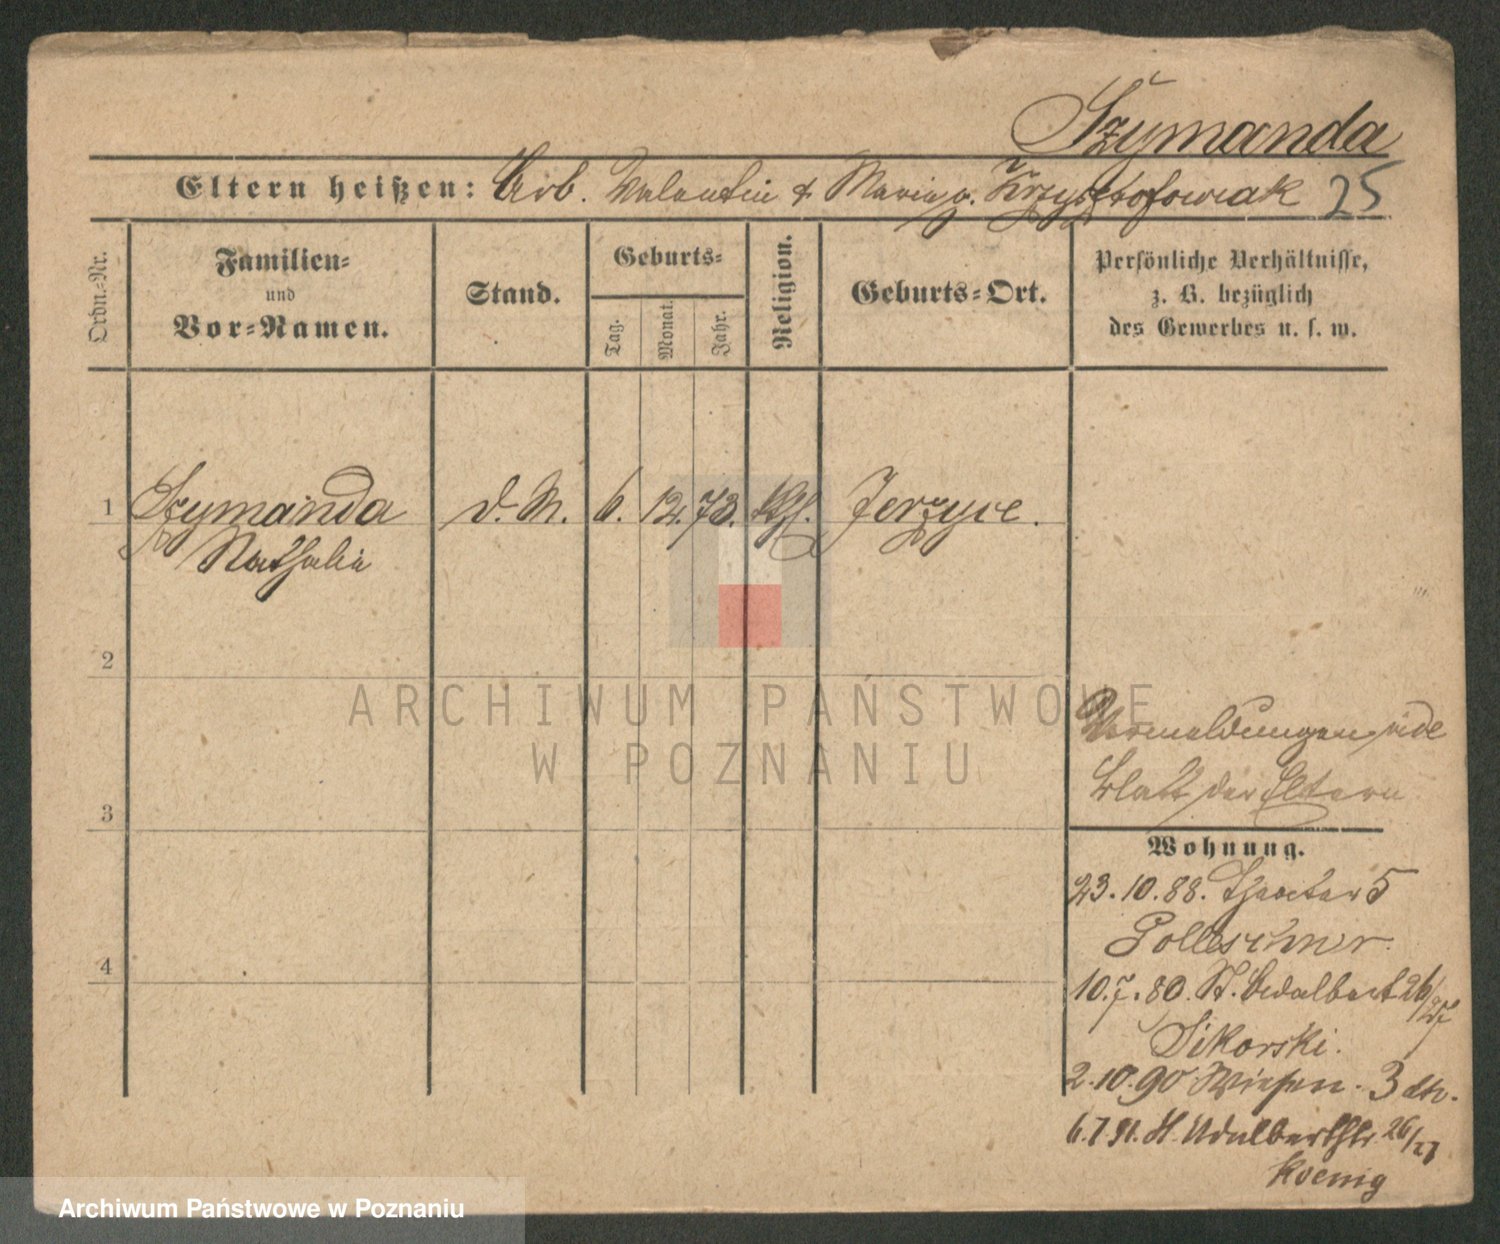 Szymanda
Eltern heißen: Arb. Valentin & Maria g. Krzysztofowiak 25
Ordn.-Nr.
Familien-
und
Vor-Namen.
Stand.
Geburts-
Tag.
Monat.
Jahr.
Religion.
Geburts-Ort.
Persönliche Verhältnisse,
z. B. bezüglich
des Gewerbes u. s. w.
1 Szymanda d. M. 6. 12. 73. kth. Jerzyce.
Nathalie
2
3
4
Vermeldungen vide
Blatt der Eltern
Wohnung.
23.10.88. Theater 5
10.7.80. St. Adalbert 26/27
Sikorski.
2.10.90 Wiesen. 3 dtr.
6.7.91. St. Adalbertstr. 26/27
Koenig
ARCHIWUM PAŃSTWOWE
W POZNANIU
Archiwum Państwowe w Poznaniu